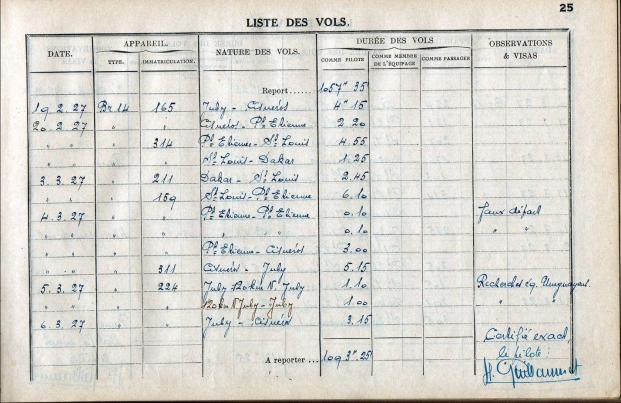 25
LISTE DES VOLS.
DATE. APPAREIL. NATURE DES VOLS. DURÉE DES VOLS OBSERVATIONS & VISAS
TYPE. IMMATRICULATION. COMME PILOTE COMME MEMBRE DE L'ÉQUIPAGE COMME PASSAGER
Report...... 1057ʰ 35
19 2.27 Br 14 165 Juby - Cisneros 4ʰ 15
20 2.27 " " Cisneros - Pt Etienne 2 20
" " " 314 Pt Etienne - St Louis 4.55
" " " " St Louis - Dakar 1.25
3.3.27 " 211 Dakar - St Louis 2.45
" " 159 St Louis - Pt Etienne 6.10
4.3.27 " " Pt Etienne - Pt Etienne 0.10 Faux départ
" " " " " 0.10 " "
" " " " Pt Etienne - Cisneros 3.00
" " " 311 Cisneros - Juby 5.15
5.3.27 " 224 Juby N. Juby 1.10 Recherches éq. Uruguayen.
" " " N Juby - Juby 1.00 " "
6.3.27 " " Juby - Cisneros 3.15
A reporter ... 1093ʰ 25
Certifié exact,
le pilote:
H. Guillaumet